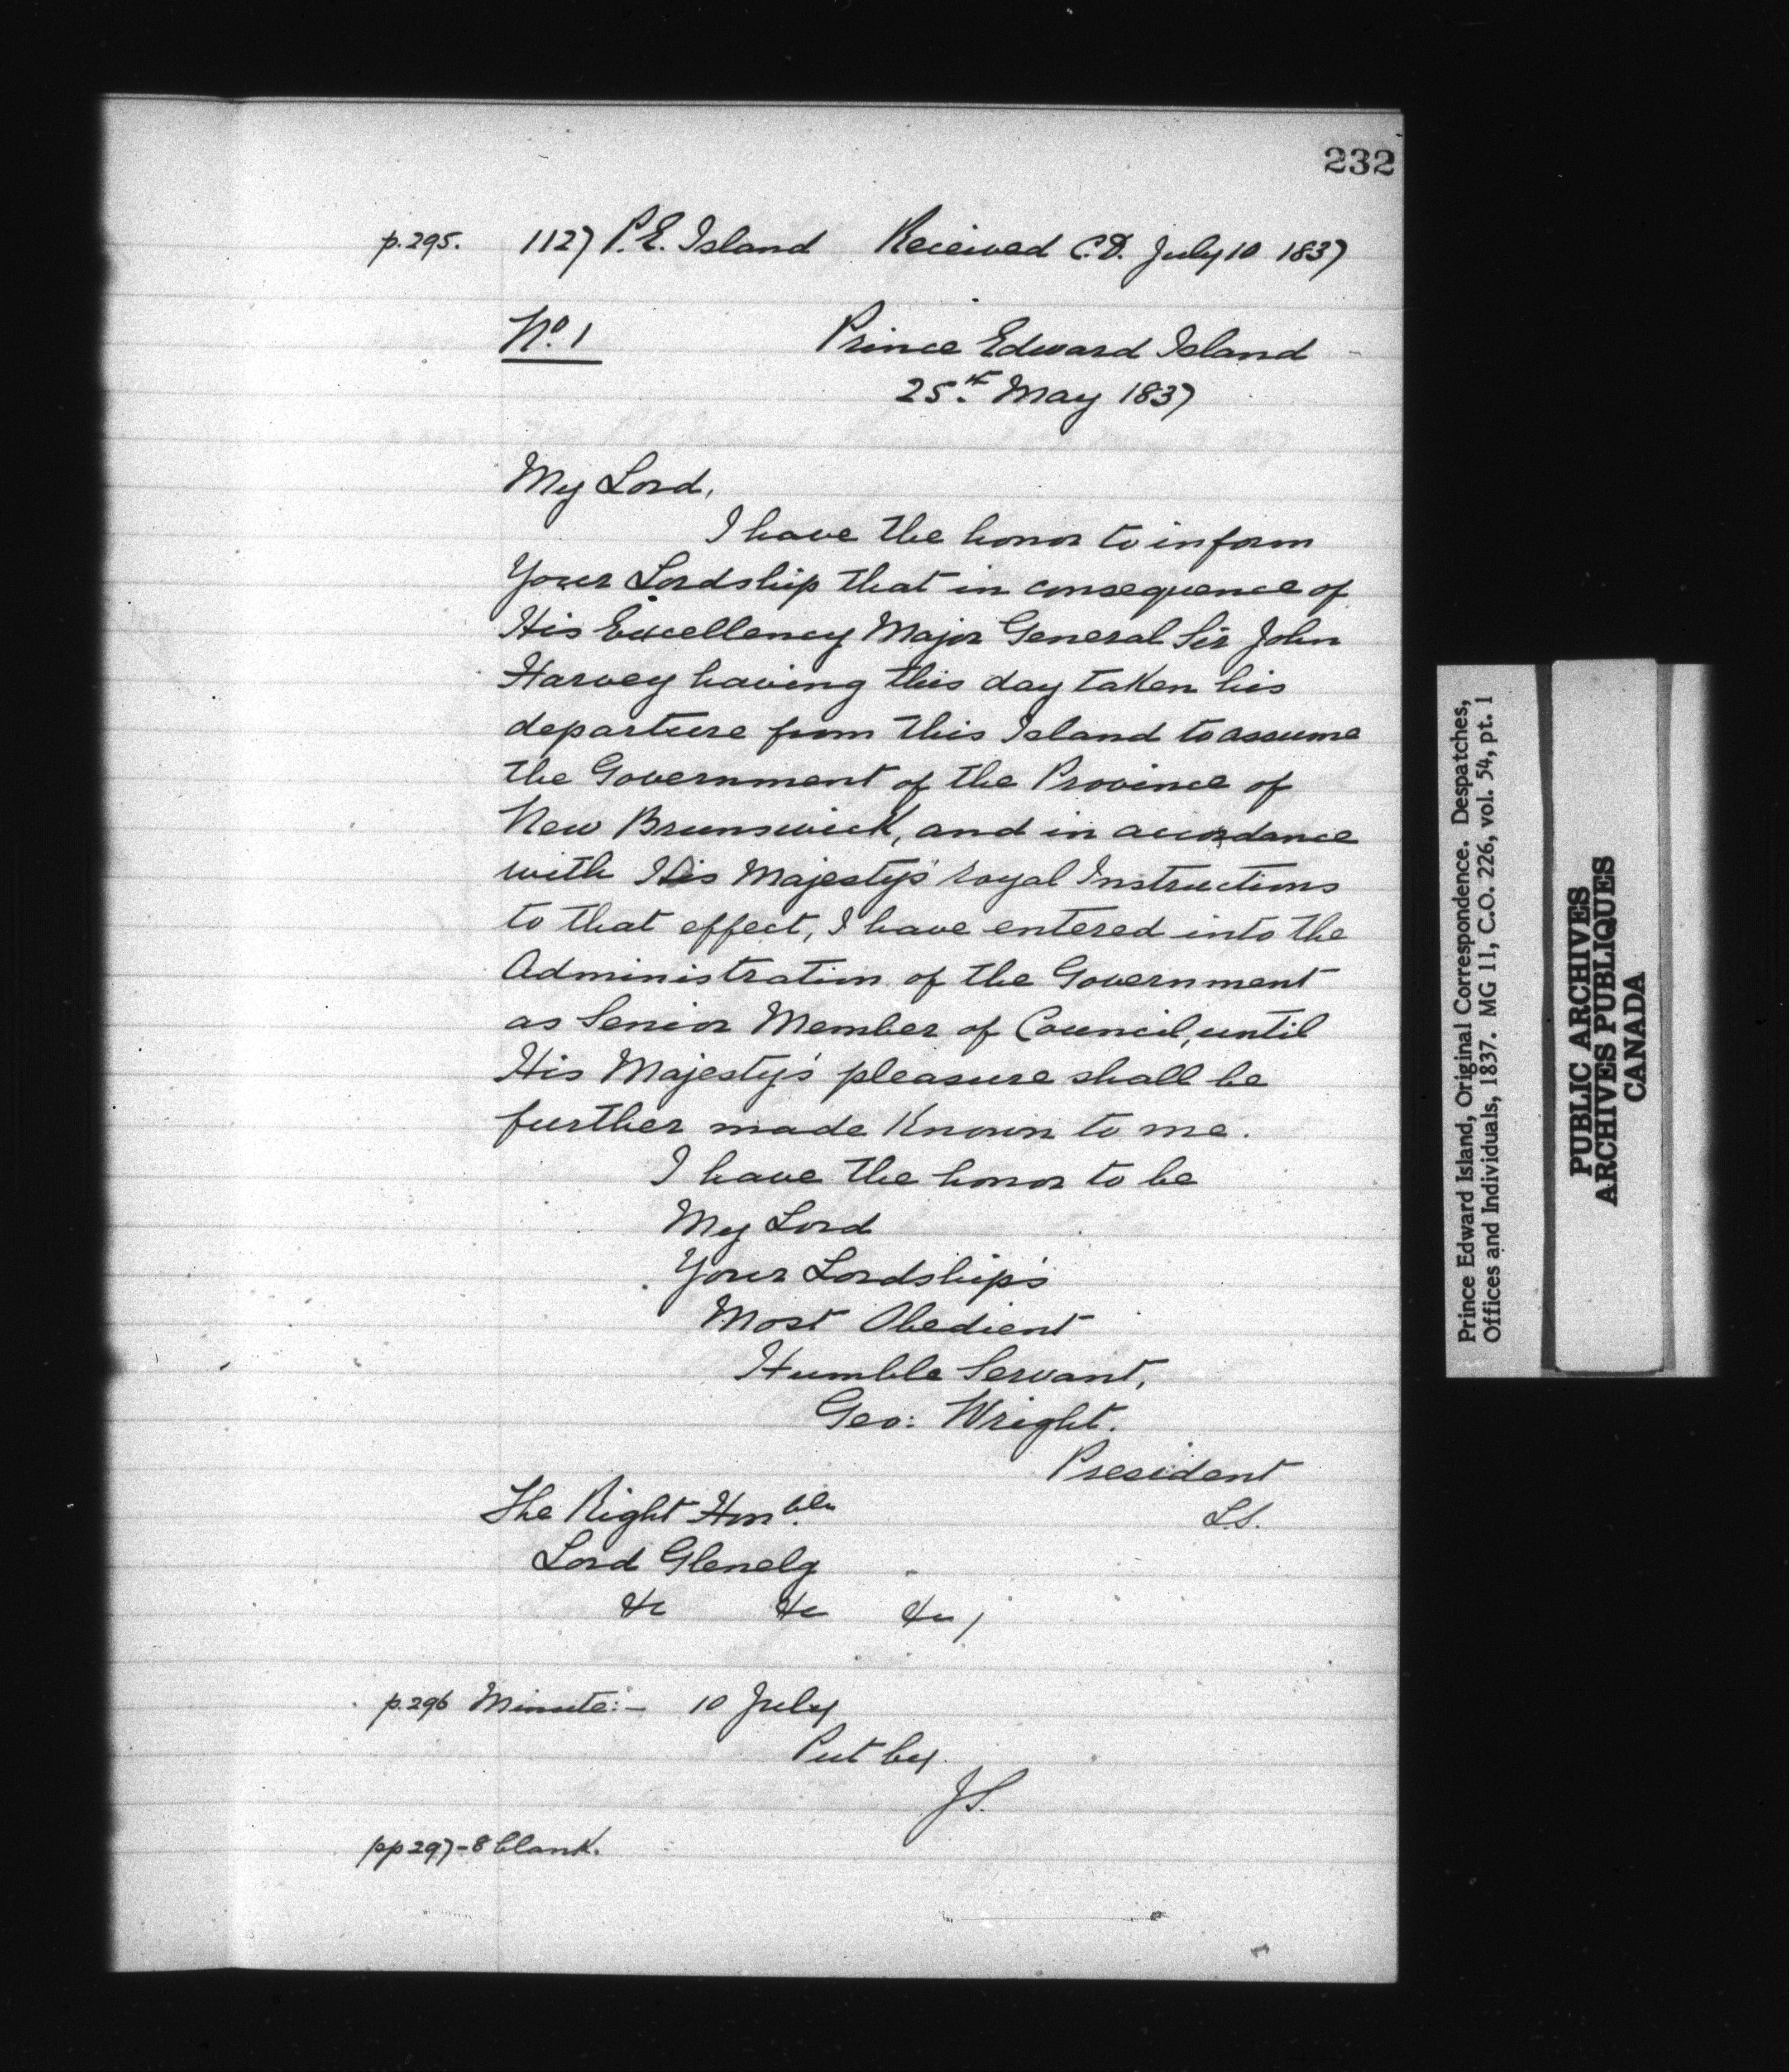 232
p.295. 1127 P.E. Island Received C.D. July 10 1837
No. 1 Prince Edward Island
25th. May 1837
My Lord,
I have the honor to inform
Your Lordship that in consequence of
His Excellency Major General Sir John
Harvey having this day taken his
departure from this Island to assume
the Government of the Province of
New Brunswick, and in accordance
with His Majesty's Royal Instructions
to that effect, I have entered into the
Administration of the Government
as Senior Member of Council, until
His Majesty's pleasure shall be
further made Known to me.
I have the honor to be
My Lord
Your Lordship's
Most Obedient
Humble Servant,
Geo: Wright.
President
The Right Honble.
L.S.
Lord Glenelg
&c &c &c /
p.296 Minute:- 10 July
Put by.
J.S.
pp 297-8 blank.
Prince Edward Island, Original Correspondence. Despatches,
Offices and Individuals, 1837. MG 11, C.O. 226, vol. 54, pt. 1
PUBLIC ARCHIVES
ARCHIVES PUBLIQUES
CANADA